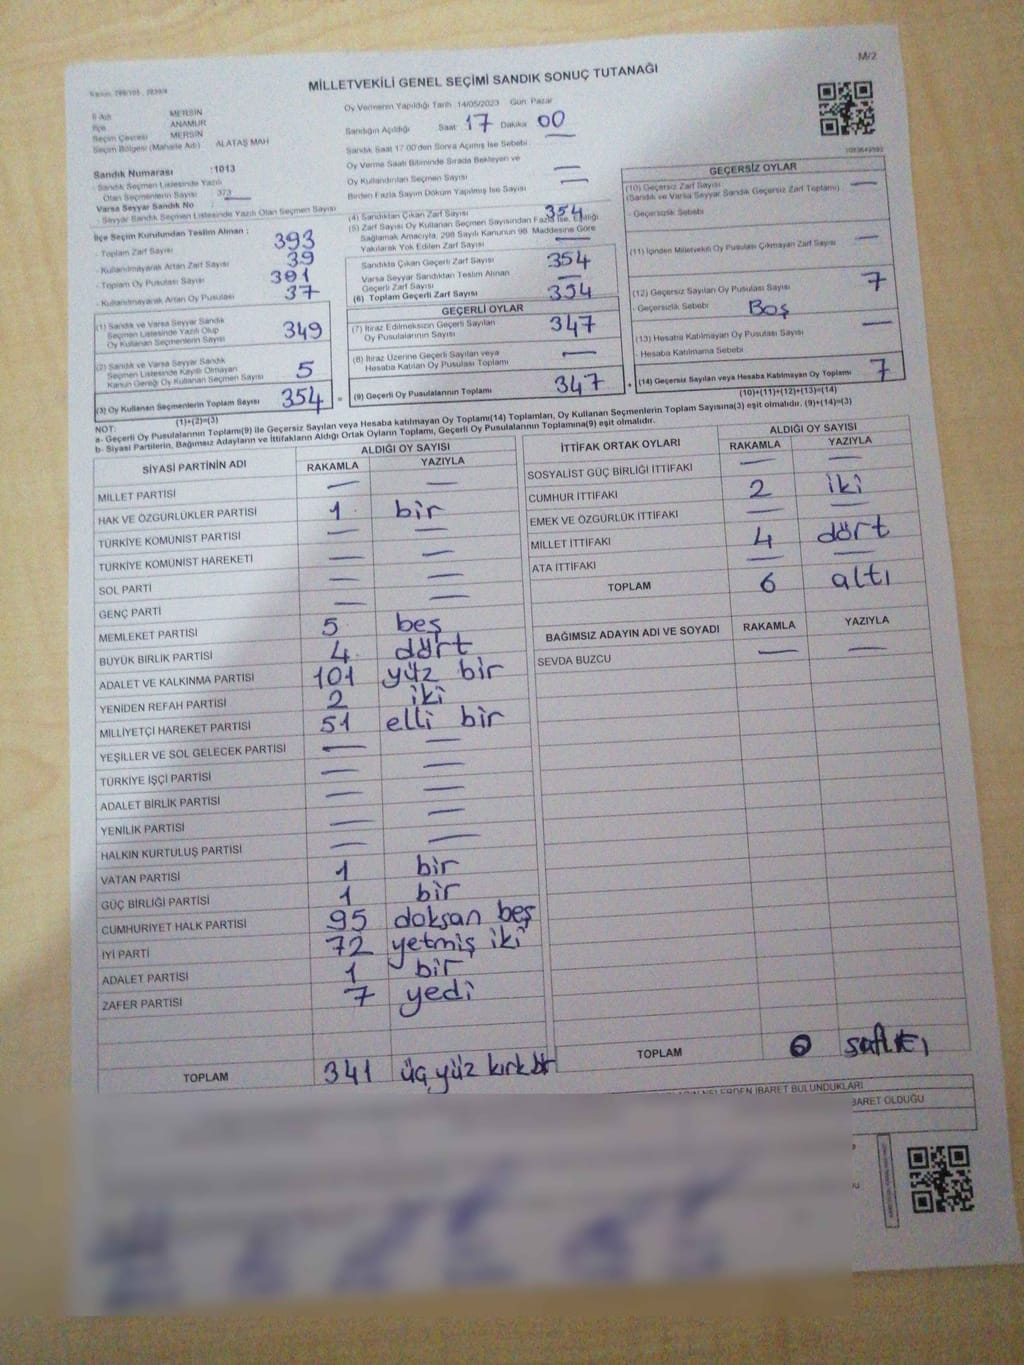 M/2
MİLLETVEKİLİ GENEL SEÇİMİ SANDIK SONUÇ TUTANAĞI
İl Adı MERSİN
İlçe ANAMUR
Seçim Çevresi MERSİN
Seçim Bölgesi (Mahalle Adı) ALATAŞ MAH
Sandık Numarası :1013
Sandık Seçmen Listesinde Yazılı
Olan Seçmenlerin Sayısı 373
Varsa Seyyar Sandık No
- Seyyar Sandık Seçmen Listesinde Yazılı Olan Seçmen Sayısı
Oy Vermenin Yapıldığı Tarih 14/05/2023 Gün Pazar
Sandığın Açıldığı Saat 17 Dakika 00
Sandık Saat 17.00'den Sonra Açılmış İse Sebebi
Oy Verme Saati Bitiminde Sırada Bekleyen ve
Oy Kullandırılan Seçmen Sayısı —
Birden Fazla Sayım Döküm Yapılmış İse Sayısı —
İlçe Seçim Kurulundan Teslim Alınan :
- Toplam Zarf Sayısı 393
- Kullanılmayarak Artan Zarf Sayısı 39
- Toplam Oy Pusulası Sayısı 391
- Kullanılmayarak Artan Oy Pusulası 37
(1) Sandık ve Varsa Seyyar Sandık
Seçmen Listesinde Yazılı Olup
Oy Kullanan Seçmenlerin Sayısı 349
(2) Sandık ve Varsa Seyyar Sandık
Seçmen Listesinde Kayıtlı Olmayan
Kanun Gereği Oy Kullanan Seçmen Sayısı 5
(3) Oy Kullanan Seçmenlerin Toplam Sayısı 354
(1)+(2)=(3)
(4) Sandıktan Çıkan Zarf Sayısı 354
(5) Zarf Sayısı Oy Kullanan Seçmen Sayısından Fazla İse, Eşitliği
Sağlamak Amacıyla, 298 Sayılı Kanunun 98. Maddesine Göre
Yakılarak Yok Edilen Zarf Sayısı —
Sandıkta Çıkan Geçerli Zarf Sayısı 354
Varsa Seyyar Sandıktan Teslim Alınan
Geçerli Zarf Sayısı —
(6) Toplam Geçerli Zarf Sayısı 354
GEÇERLİ OYLAR
(7) İtiraz Edilmeksizin Geçerli Sayılan
Oy Pusulalarının Sayısı 347
(8) İtiraz Üzerine Geçerli Sayılan veya
Hesaba Katılan Oy Pusulası Toplamı —
= (9) Geçerli Oy Pusulalarının Toplamı 347
GEÇERSİZ OYLAR
(10) Geçersiz Zarf Sayısı —
(Sandık ve Varsa Seyyar Sandık Geçersiz Zarf Toplamı)
- Geçersizlik Sebebi
(11) İçinden Milletvekili Oy Pusulası Çıkmayan Zarf Sayısı —
(12) Geçersiz Sayılan Oy Pusulası Sayısı 7
- Geçersizlik Sebebi Boş
(13) Hesaba Katılmayan Oy Pusulası Sayısı —
- Hesaba Katılmama Sebebi
+ (14) Geçersiz Sayılan veya Hesaba Katılmayan Oy Toplamı 7
(10)+(11)+(12)+(13)=(14)
NOT:
a- Geçerli Oy Pusulalarının Toplamı(9) ile Geçersiz Sayılan veya Hesaba katılmayan Oy Toplamı(14) Toplamları, Oy Kullanan Seçmenlerin Toplam Sayısına(3) eşit olmalıdır. (9)+(14)=(3)
b- Siyasi Partilerin, Bağımsız Adayların ve İttifakların Aldığı Ortak Oyların Toplamı, Geçerli Oy Pusulalarının Toplamına(9) eşit olmalıdır.
SİYASİ PARTİNİN ADI ALDIĞI OY SAYISI
RAKAMLA YAZIYLA
MİLLET PARTİSİ — —
HAK VE ÖZGÜRLÜKLER PARTİSİ 1 bir
TÜRKİYE KOMÜNİST PARTİSİ — —
TÜRKİYE KOMÜNİST HAREKETİ — —
SOL PARTİ — —
GENÇ PARTİ — —
MEMLEKET PARTİSİ 5 beş
BÜYÜK BİRLİK PARTİSİ 4 dört
ADALET VE KALKINMA PARTİSİ 101 yüz bir
YENİDEN REFAH PARTİSİ 2 iki
MİLLİYETÇİ HAREKET PARTİSİ 51 elli bir
YEŞİLLER VE SOL GELECEK PARTİSİ — —
TÜRKİYE İŞÇİ PARTİSİ — —
ADALET BİRLİK PARTİSİ — —
YENİLİK PARTİSİ — —
HALKIN KURTULUŞ PARTİSİ — —
VATAN PARTİSİ 1 bir
GÜÇ BİRLİĞİ PARTİSİ 1 bir
CUMHURİYET HALK PARTİSİ 95 doksan beş
İYİ PARTİ 72 yetmiş iki
ADALET PARTİSİ 1 bir
ZAFER PARTİSİ 7 yedi
TOPLAM 341 üç yüz kırk bir
İTTİFAK ORTAK OYLARI ALDIĞI OY SAYISI
RAKAMLA YAZIYLA
SOSYALİST GÜÇ BİRLİĞİ İTTİFAKI — —
CUMHUR İTTİFAKI 2 iki
EMEK VE ÖZGÜRLÜK İTTİFAKI — —
MİLLET İTTİFAKI 4 dört
ATA İTTİFAKI — —
TOPLAM 6 altı
BAĞIMSIZ ADAYIN ADI VE SOYADI RAKAMLA YAZIYLA
SEVDA BUZCU — —
TOPLAM
NELERDEN İBARET BULUNDUKLARI
BARET OLDUĞU